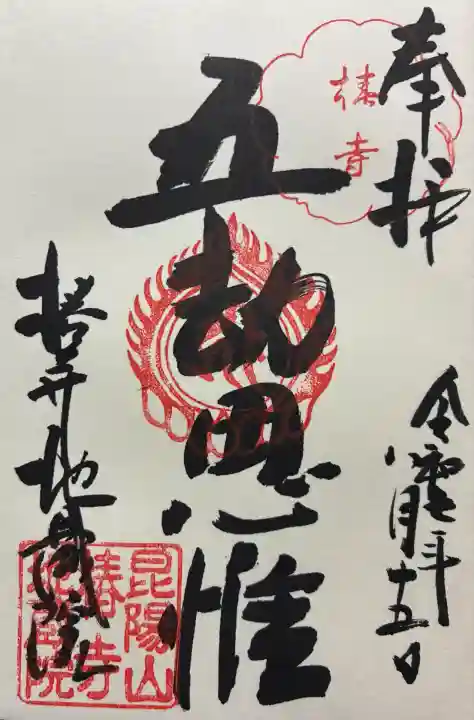 奉拝
椿寺
五劫思惟
十五日
地蔵院
昆陽山
椿寺
地蔵院